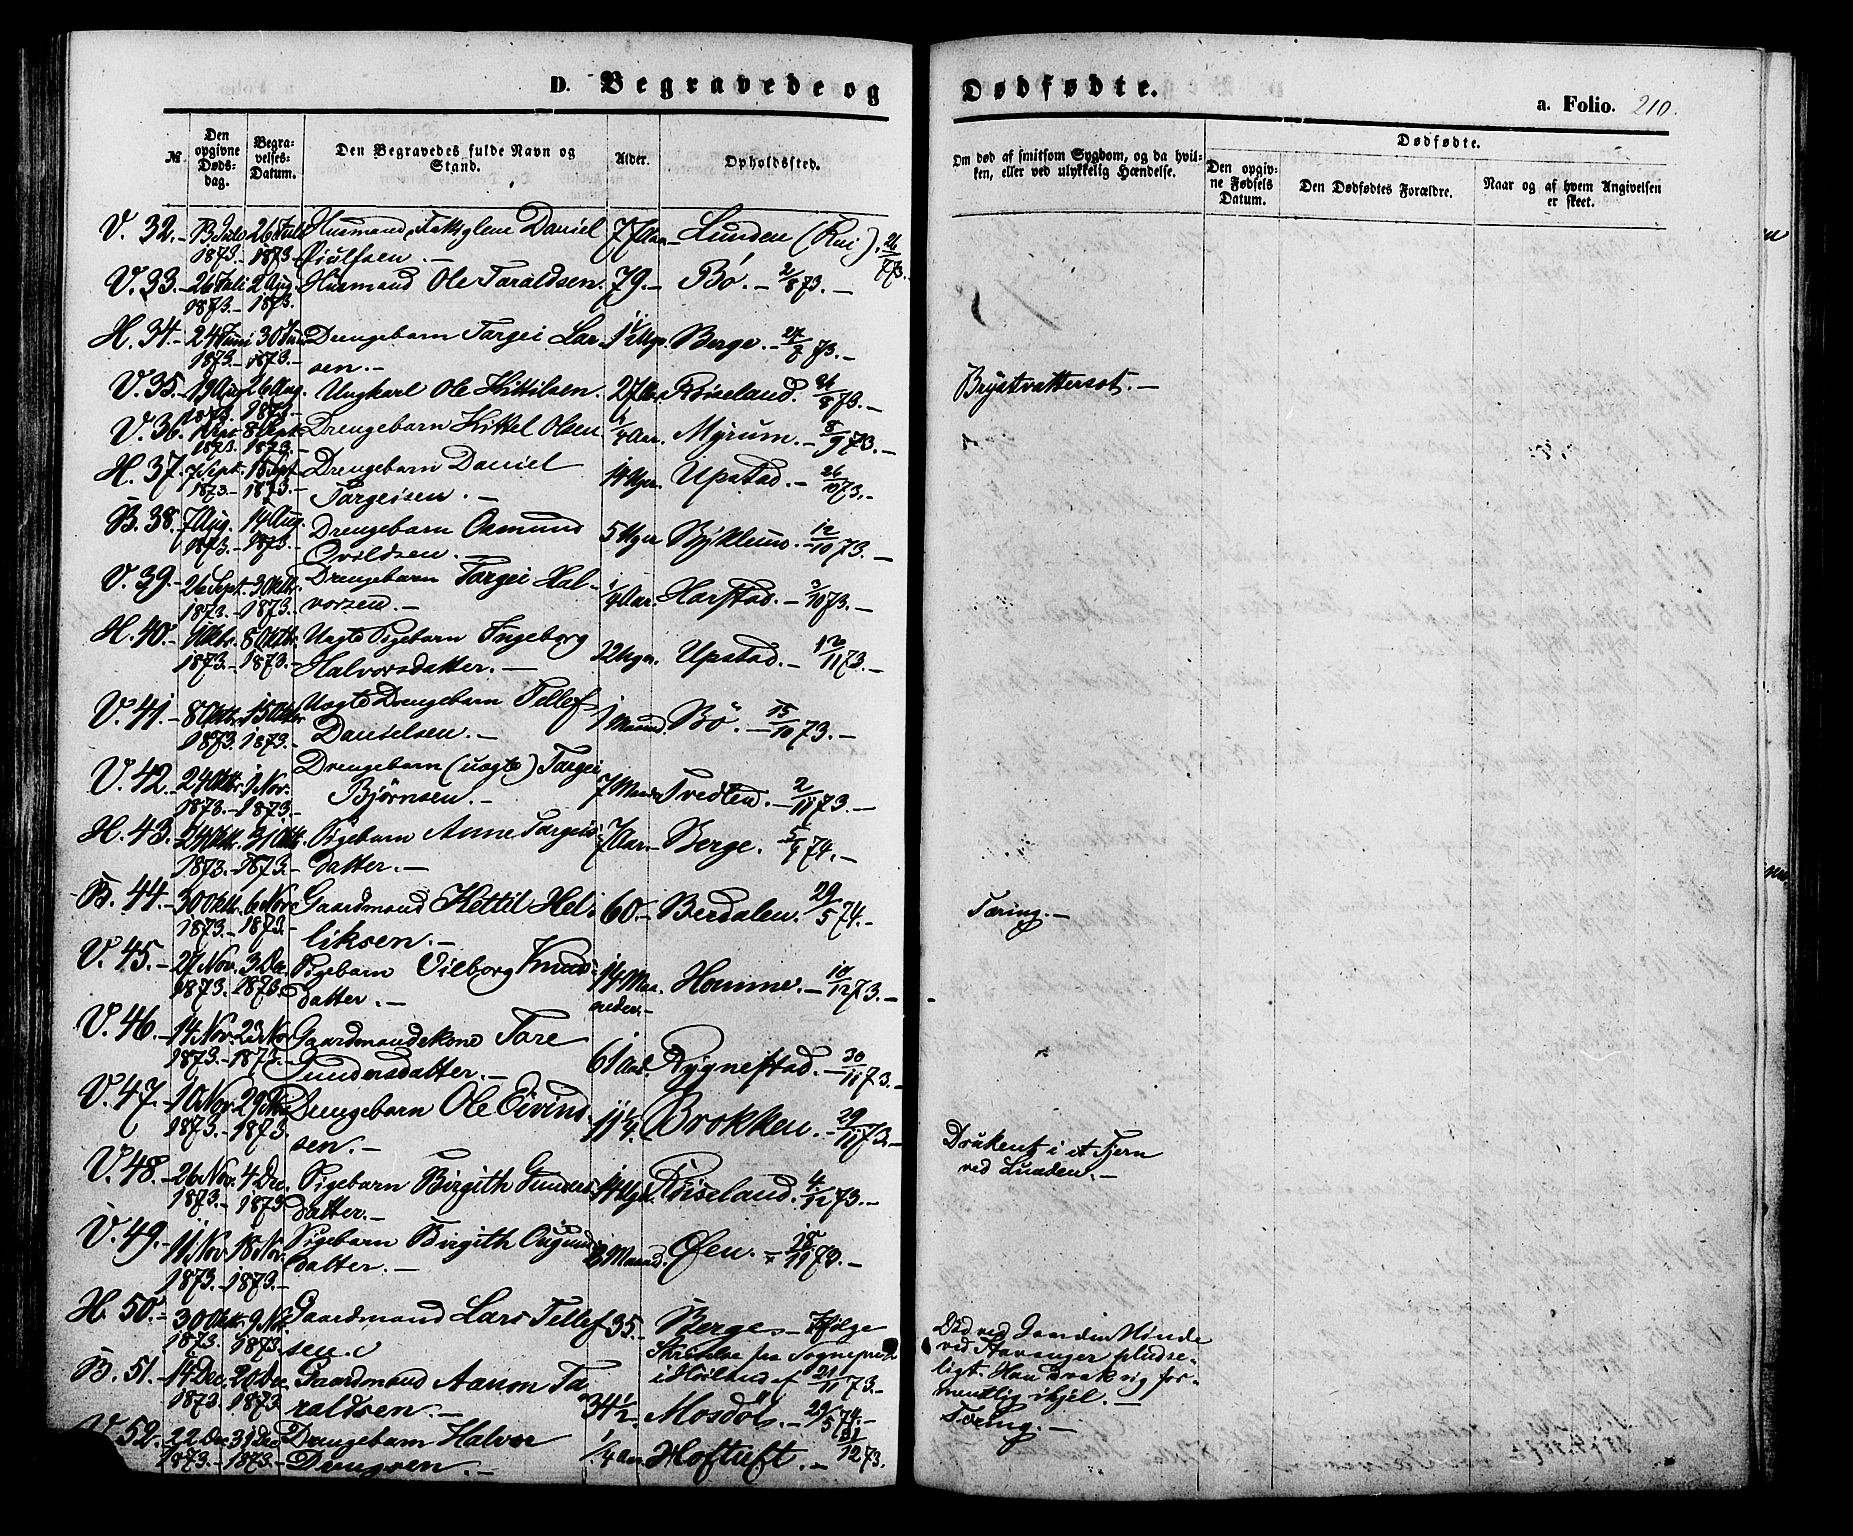 D. Begravede og Dødfødte.
a. Folio. 210.
№
Den opgivne Dødsdag.
Begravelses-Datum.
Den Begravedes fulde Navn og Stand.
Alder.
Opholdssted.
Om død af smitsom Sygdom, og da hvilken, eller ved ulykkelig Hændelse.
Dødfødte.
Den opgivne Fødsels Datum.
Den Dødfødtes Forældre.
Naar og af hvem Angivelsen er skeet.
V. 32.- 26 Juli Husmand, Daniel 77 Aar- Lunden (Rui).
1873.- 1873
V. 33.- 26 Juli 2 Aug. Husmand Ole Taraldsen. 79.- Bø. - 2/8 73.-
1873.- 1873.
H. 34.- 24 Juni 30 Juni Drengebarn Targei Lar-
1873.- 1873.- sen.- Berge. - 73.-
V. 35.- 19 Aug. 26 Aug. Ungkarl Ole Kittilsen. 27 Aar Røiseland. 26/8 73.- Brystvattersot.-
1873. 1873.-
V. 36. 1 Sept. 8 Sept. Drengebarn Kittel Olsen 1/4 Aar.- Myrum. - 8/9 73.-
1873. 1873.-
H. 37. 7 Sept. 15 Sept. Drengebarn Daniel 14 Uger. Upstad. - 26/10 73.-
1873.- 1873.- Targeisen.-
B. 38. 7 Aug. 14 Aug. Drengebarn Osmund 5 Uger Byklum. 12/10 73.-
1873.- 1873.-
V. 39.- 26 Sept. 3 Oktbr. Drengebarn Targei Hal-
1873.- 1873.- vorsen.- 1/4 Aar. Harstad. - 3/10 73.-
H. 40.- 1 Oktbr. 8 Oktbr. Uægte Pigebarn Ingeborg
1873.- 1873.- Halvorsdatter.- 12 Uger. Upstad. - /11 73.-
V. 41.- 8 Oktbr. 15 Oktbr Uægte Drengebarn Tellef
1873. 1873.- Danielsen.- 1 Maaned. Bø. - 15/10 73.-
V. 42. 24 Oktbr. 1 Nov. Drengebarn (uægte) Targei
1873.- 1873.- Bjørnsen.- 7 Maaneder Tvedten. - 2/11 73.-
H. 43. 24 Oktbr. 31 Oktbr. Pigebarn Anne Targeis-
1873.- 1873.- datter.- 7 Aar.- Berge. 74.-
B. 44.- 30 Oktbr. 6 Nov. Gaardmand Kettil Hel- 60.- Berdalen. 29/5 74.- Tæring.-
1873.- 1873.- liksen.-
V. 45.- 27 Nov. 3 Dec Pigebarn Vilborg Knuds- 14 Maa- Homme. - 10/12 73.-
1873.- 1873. datter.- neder.-
V. 46.- 14 Nov. 23 Nov Gaardmandskone Tore
1873.- 1873.- Gundersdatter.- 61 Aar. Rygnestad. - 30/11 73.-
V. 47.- 10 Nov. 29 Nov Drengebarn Ole Eivind-
1873.- 1873. sen.- 11 1/4. Brokken. - 29/11 73.- Druknet i et Tjern
ved Lunden.-
V. 48.- 26 Nov. 4 Dec. Pigebarn Birgith Gunders- 14 Uger. Røiseland. 4/12 73.-
1873.- 1873 datter.-
V. 49.- 11 Nov. 18 Nov. Pigebarn Birgith Ougunds-
1873.- 1873.- datter.- Maaned. Øen. - 18/11 73.-
H. 50.- 30 Oktbr. 9 Nov. Gaardmand Lars Tellef 35.- Berge - Ifølge
1873.- 1873. sen. Skrivelse fra Sognepræst
i Høiland af 21/11 73.-
Død ved Sandnæs
ved Stavanger pludse-
ligt. Han drak sig for-
mentlig ihjel.-
B. 51.- 14 Dec. 20 Dec. Gaardmand Aanon Ta-
1873.- 1873 raldsen.- 34 1/2. Mosdøl. - 29/5 74.- Tæring.-
V. 52. 22 Dec 31 Dec Drengebarn Halvor
1873.- 1873.- 1/4 Aar Hoftuft. - 31/12 73.